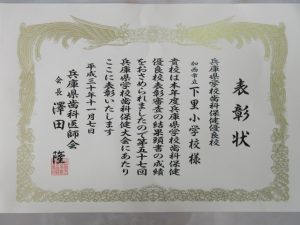 表彰状
兵庫県学校歯科保健優良校
加西市立下里小学校様
貴校は本年度兵庫県学校歯科保健
優良校表彰審査の結果頭書の成績
をおさめられましたので第五十七回
兵庫県学校歯科保健大会にあたり
ここに表彰いたします
平成三十年十一月七日
兵庫県歯科医師会
会長 澤田隆